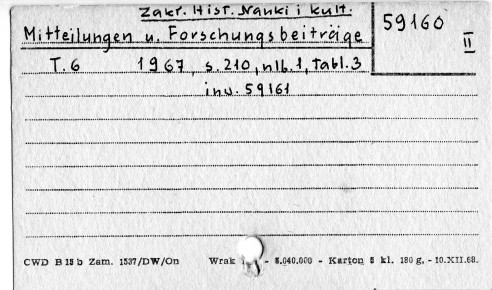 Zakr. Hist. Nauki i kult.
Mitteilungen u. Forschungsbeiträge
59160
II
T. 6 1967, s. 210, nlb. 1, tabl. 3
inw. 59161
CWD B 15 b Zam. 1537/DW/On Wrak - 8.040.000 - Karton 8 kl. 180 g. - 10.XII.68.